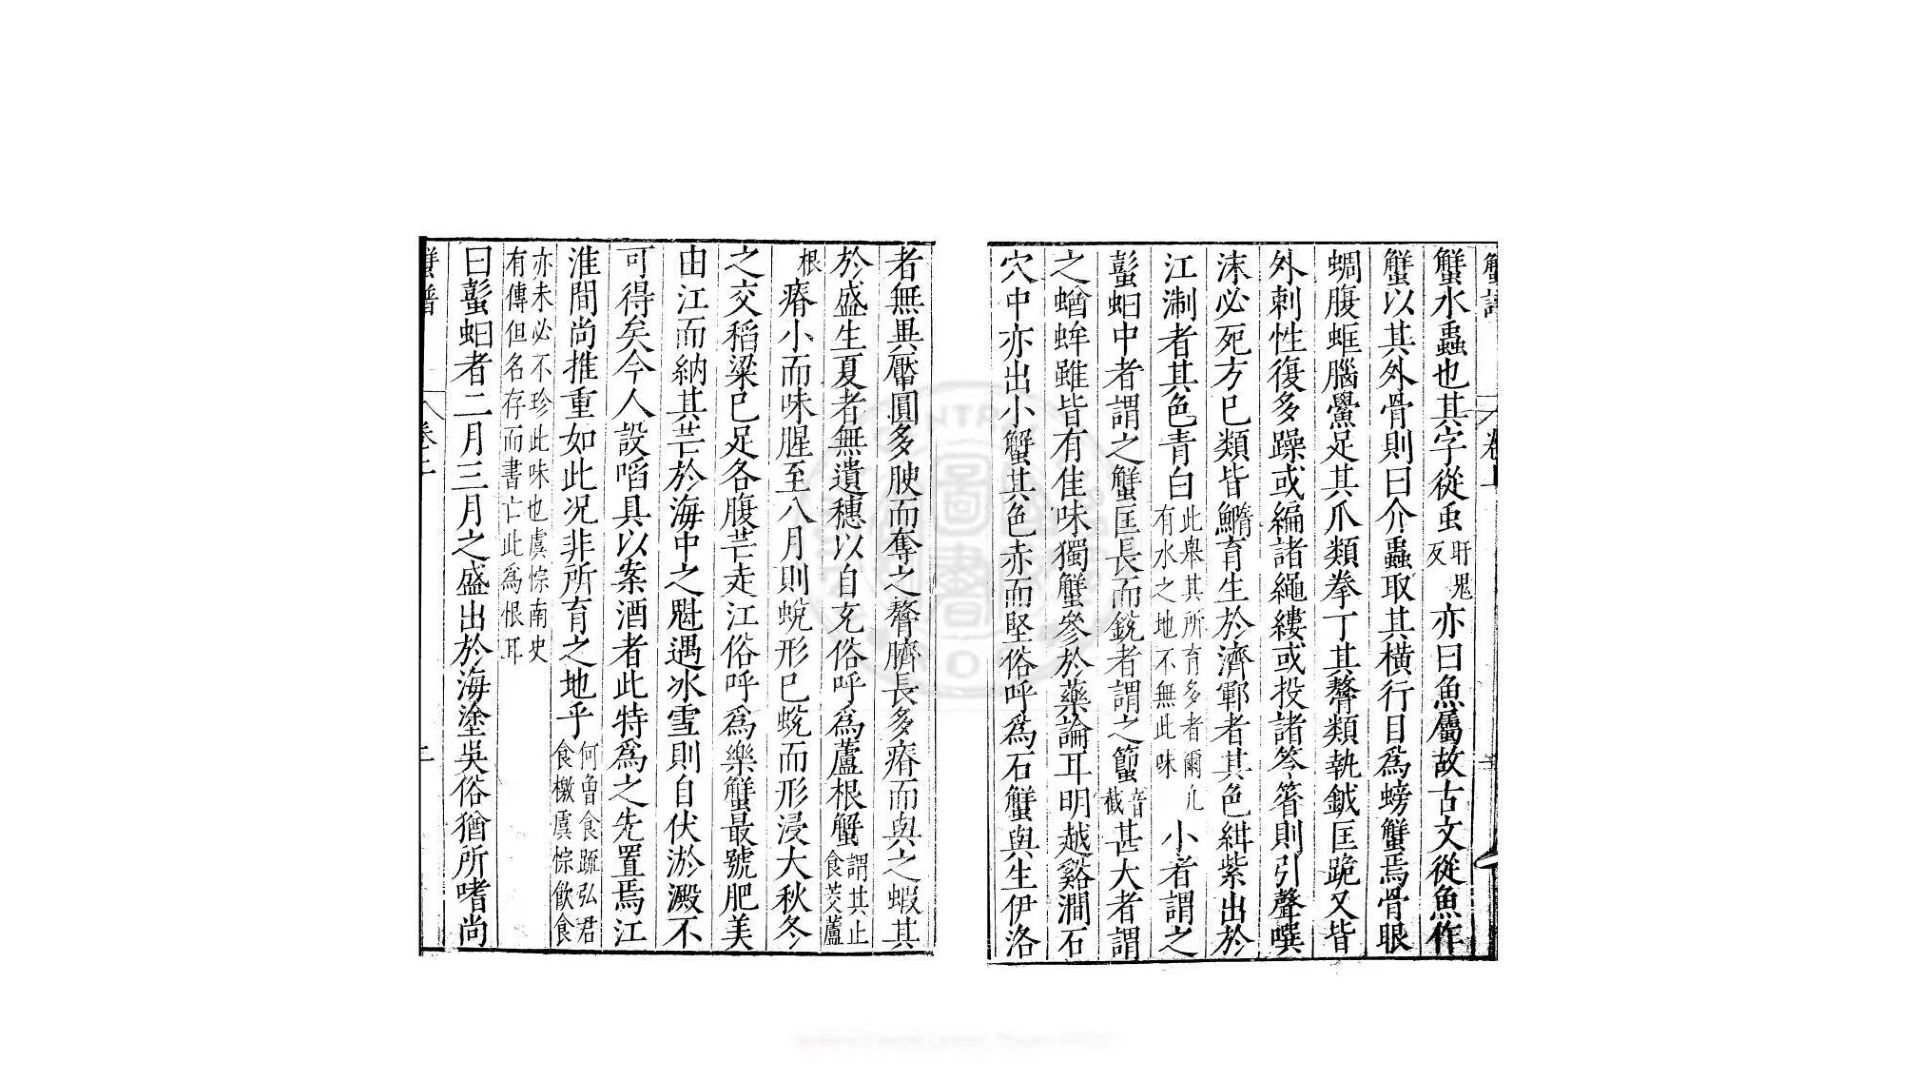 蟹譜 卷上
蟹水蟲也其字從虫盱鬼反亦曰魚屬故古文從魚作
蟹以其外骨則曰介蟲取其橫行目為螃蟹焉骨眼
蜩腹蛭腦鱟足其爪類拳丁其螯類執鉞匡跪又皆
外刺性復多躁或編諸繩縷或投諸笭箵則引聲噀
沫必死方已類皆鱐育生於濟鄆者其色紺紫出於
江淛者其色青白此舉其所育多者爾凡有水之地不無此味小者謂之
蟛蚏中者謂之蟹匡長而銳者謂之蠞音截甚大者謂
之蝤蛑雖皆有佳味獨蟹參於藥論耳明越谿澗石
穴中亦出小蟹其色赤而堅俗呼為石蟹與生伊洛
者無異臍圓多腴而奪之螯臍長多瘠而與之蝦其
於盛生夏者無遺穗以自充俗呼為蘆根蟹謂其止食茭蘆
根瘠小而味腥至八月則蛻形已蛻而形浸大秋冬
之交稻粱已足各腹芒走江俗呼為樂蟹最號肥美
由江而納其芒於海中之魁遇冰雪則自伏淤澱不
可得矣今人設謟具以案酒者此特為之先置焉江
淮間尚推重如此况非所育之地乎何魯食疏弘君食檄虞悰飲食
亦未必不珍此味也虞悰南史有傳但名存而書亡此為根耳
曰蟛蚏者二月三月之盛出於海塗吳俗猶所嗜尚
蟹譜 卷上 二